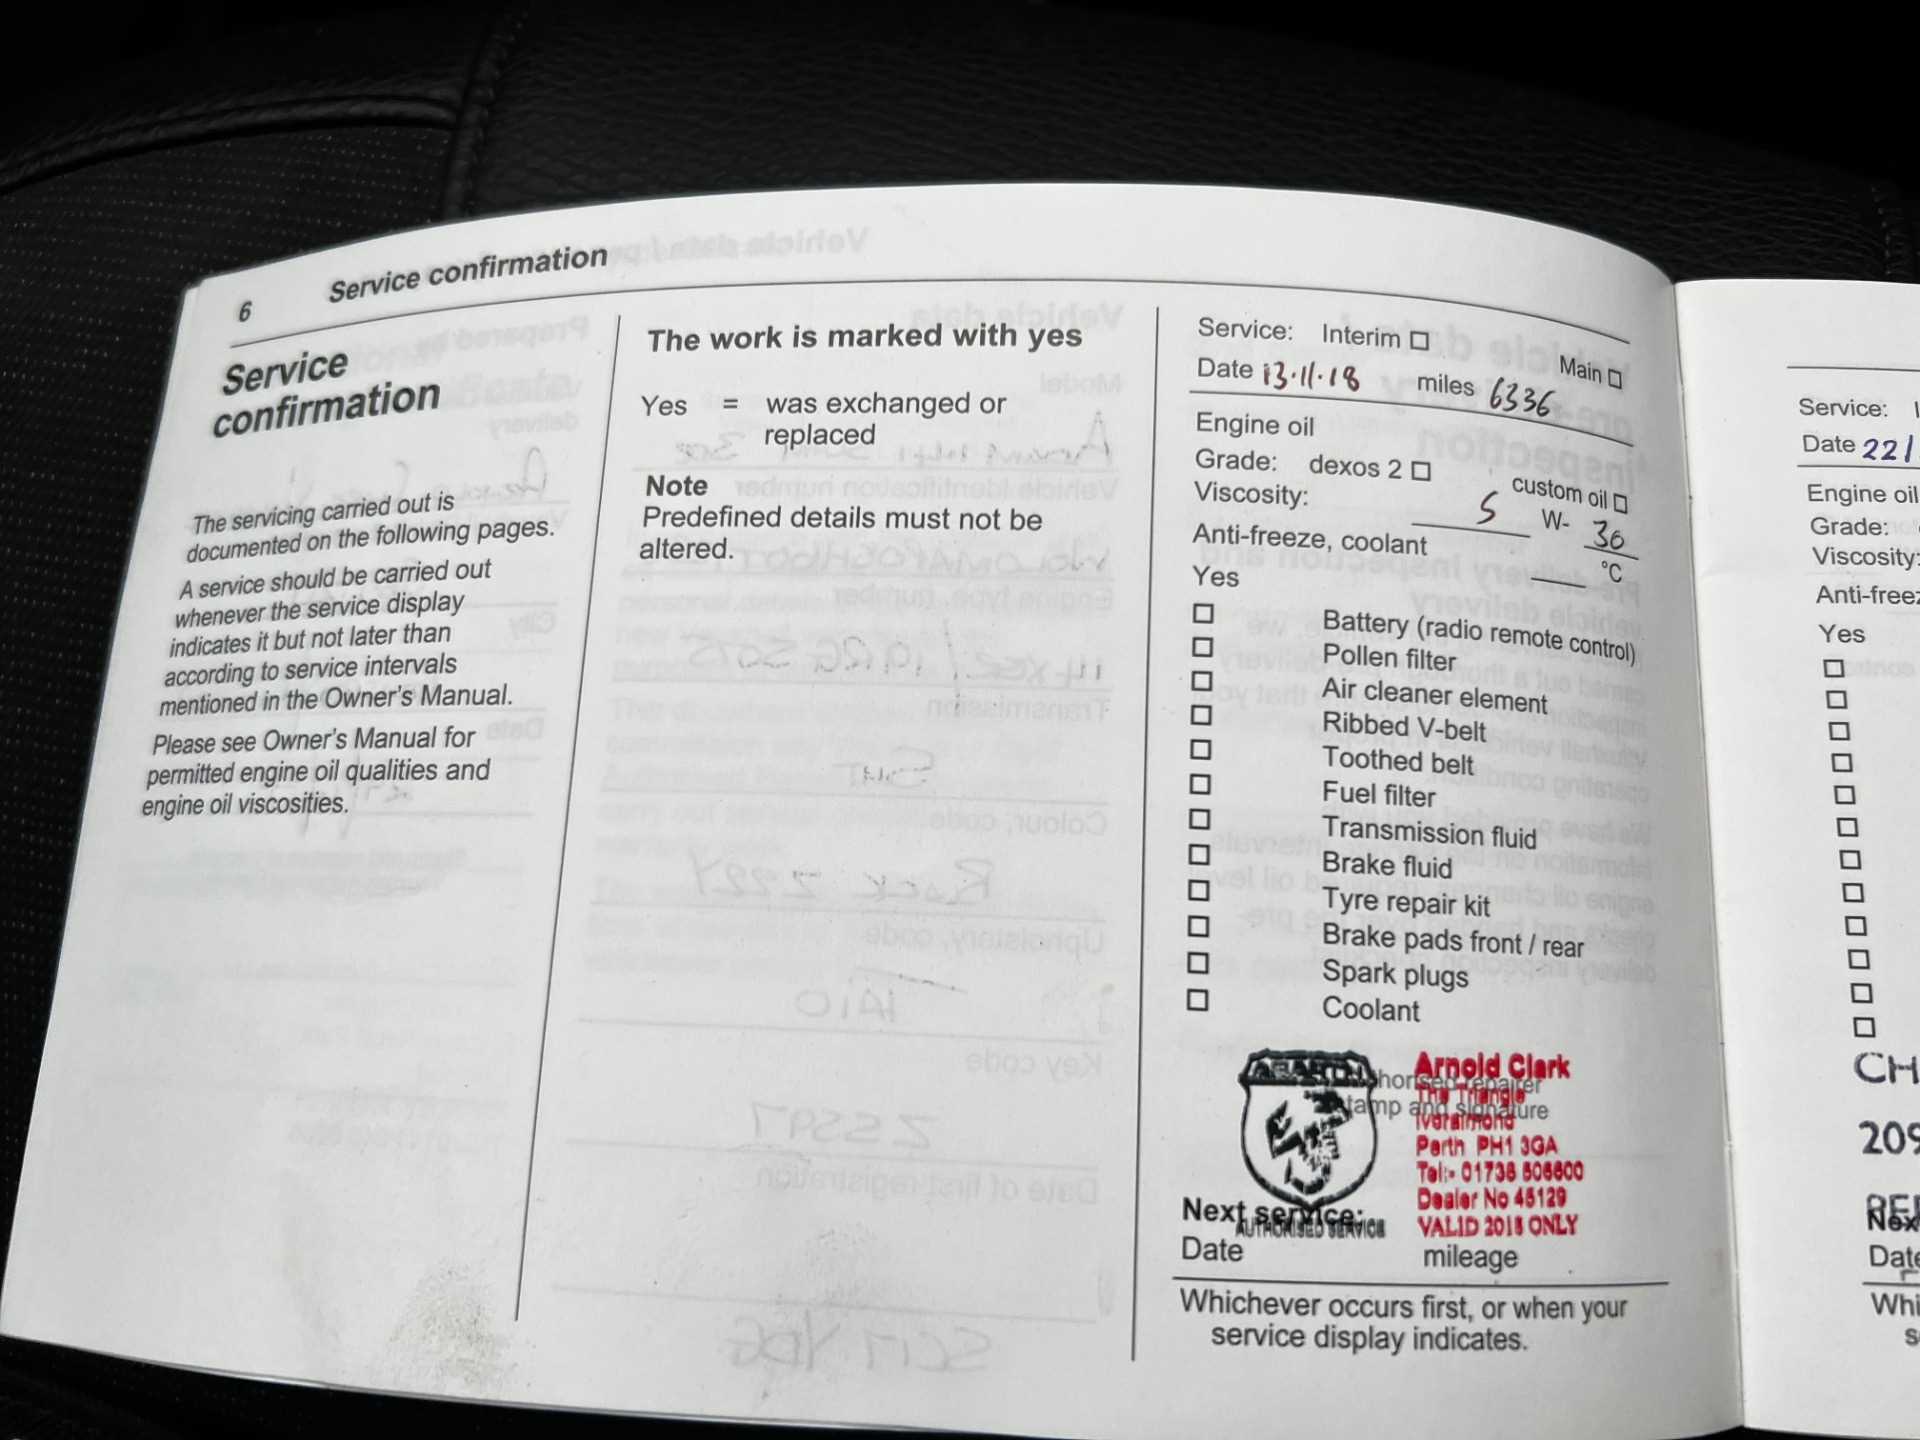 6 Service confirmation
Service
confirmation
The servicing carried out is
documented on the following pages.
A service should be carried out
whenever the service display
indicates it but not later than
according to service intervals
mentioned in the Owner's Manual.
Please see Owner's Manual for
permitted engine oil qualities and
engine oil viscosities.
The work is marked with yes
Yes = was exchanged or
replaced
Note
Predefined details must not be
altered.
Service: Interim Main
Date 13.11.18 miles 6336
Engine oil
Grade: dexos 2 custom oil
Viscosity: 5 W- 30
Anti-freeze, coolant °C
Yes
Battery (radio remote control)
Pollen filter
Air cleaner element
Ribbed V-belt
Toothed belt
Fuel filter
Transmission fluid
Brake fluid
Tyre repair kit
Brake pads front / rear
Spark plugs
Coolant
ABARTH
AUTHORISED SERVICE
Arnold Clark
The Triangle
Inveralmond
Perth PH1 3GA
Tel:- 01738
Dealer No 45129
VALID 2018 ONLY
stamp and signature
Next service:
Date mileage
Whichever occurs first, or when your
service display indicates.
Service:
Date 22/
Engine oil
Grade:
Viscosity:
Yes
CH
209
Date